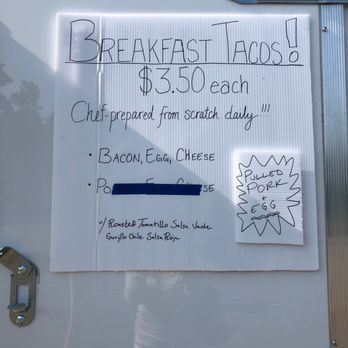 BREAKFAST TACOS!
$3.50 each
Chef-prepared from scratch daily!!!
• BACON, EGG, CHEESE
w/ Roasted Tomatillo Salsa Verde
Guajillo Chile Salsa Roja
PULLED
PORK
+
EGG